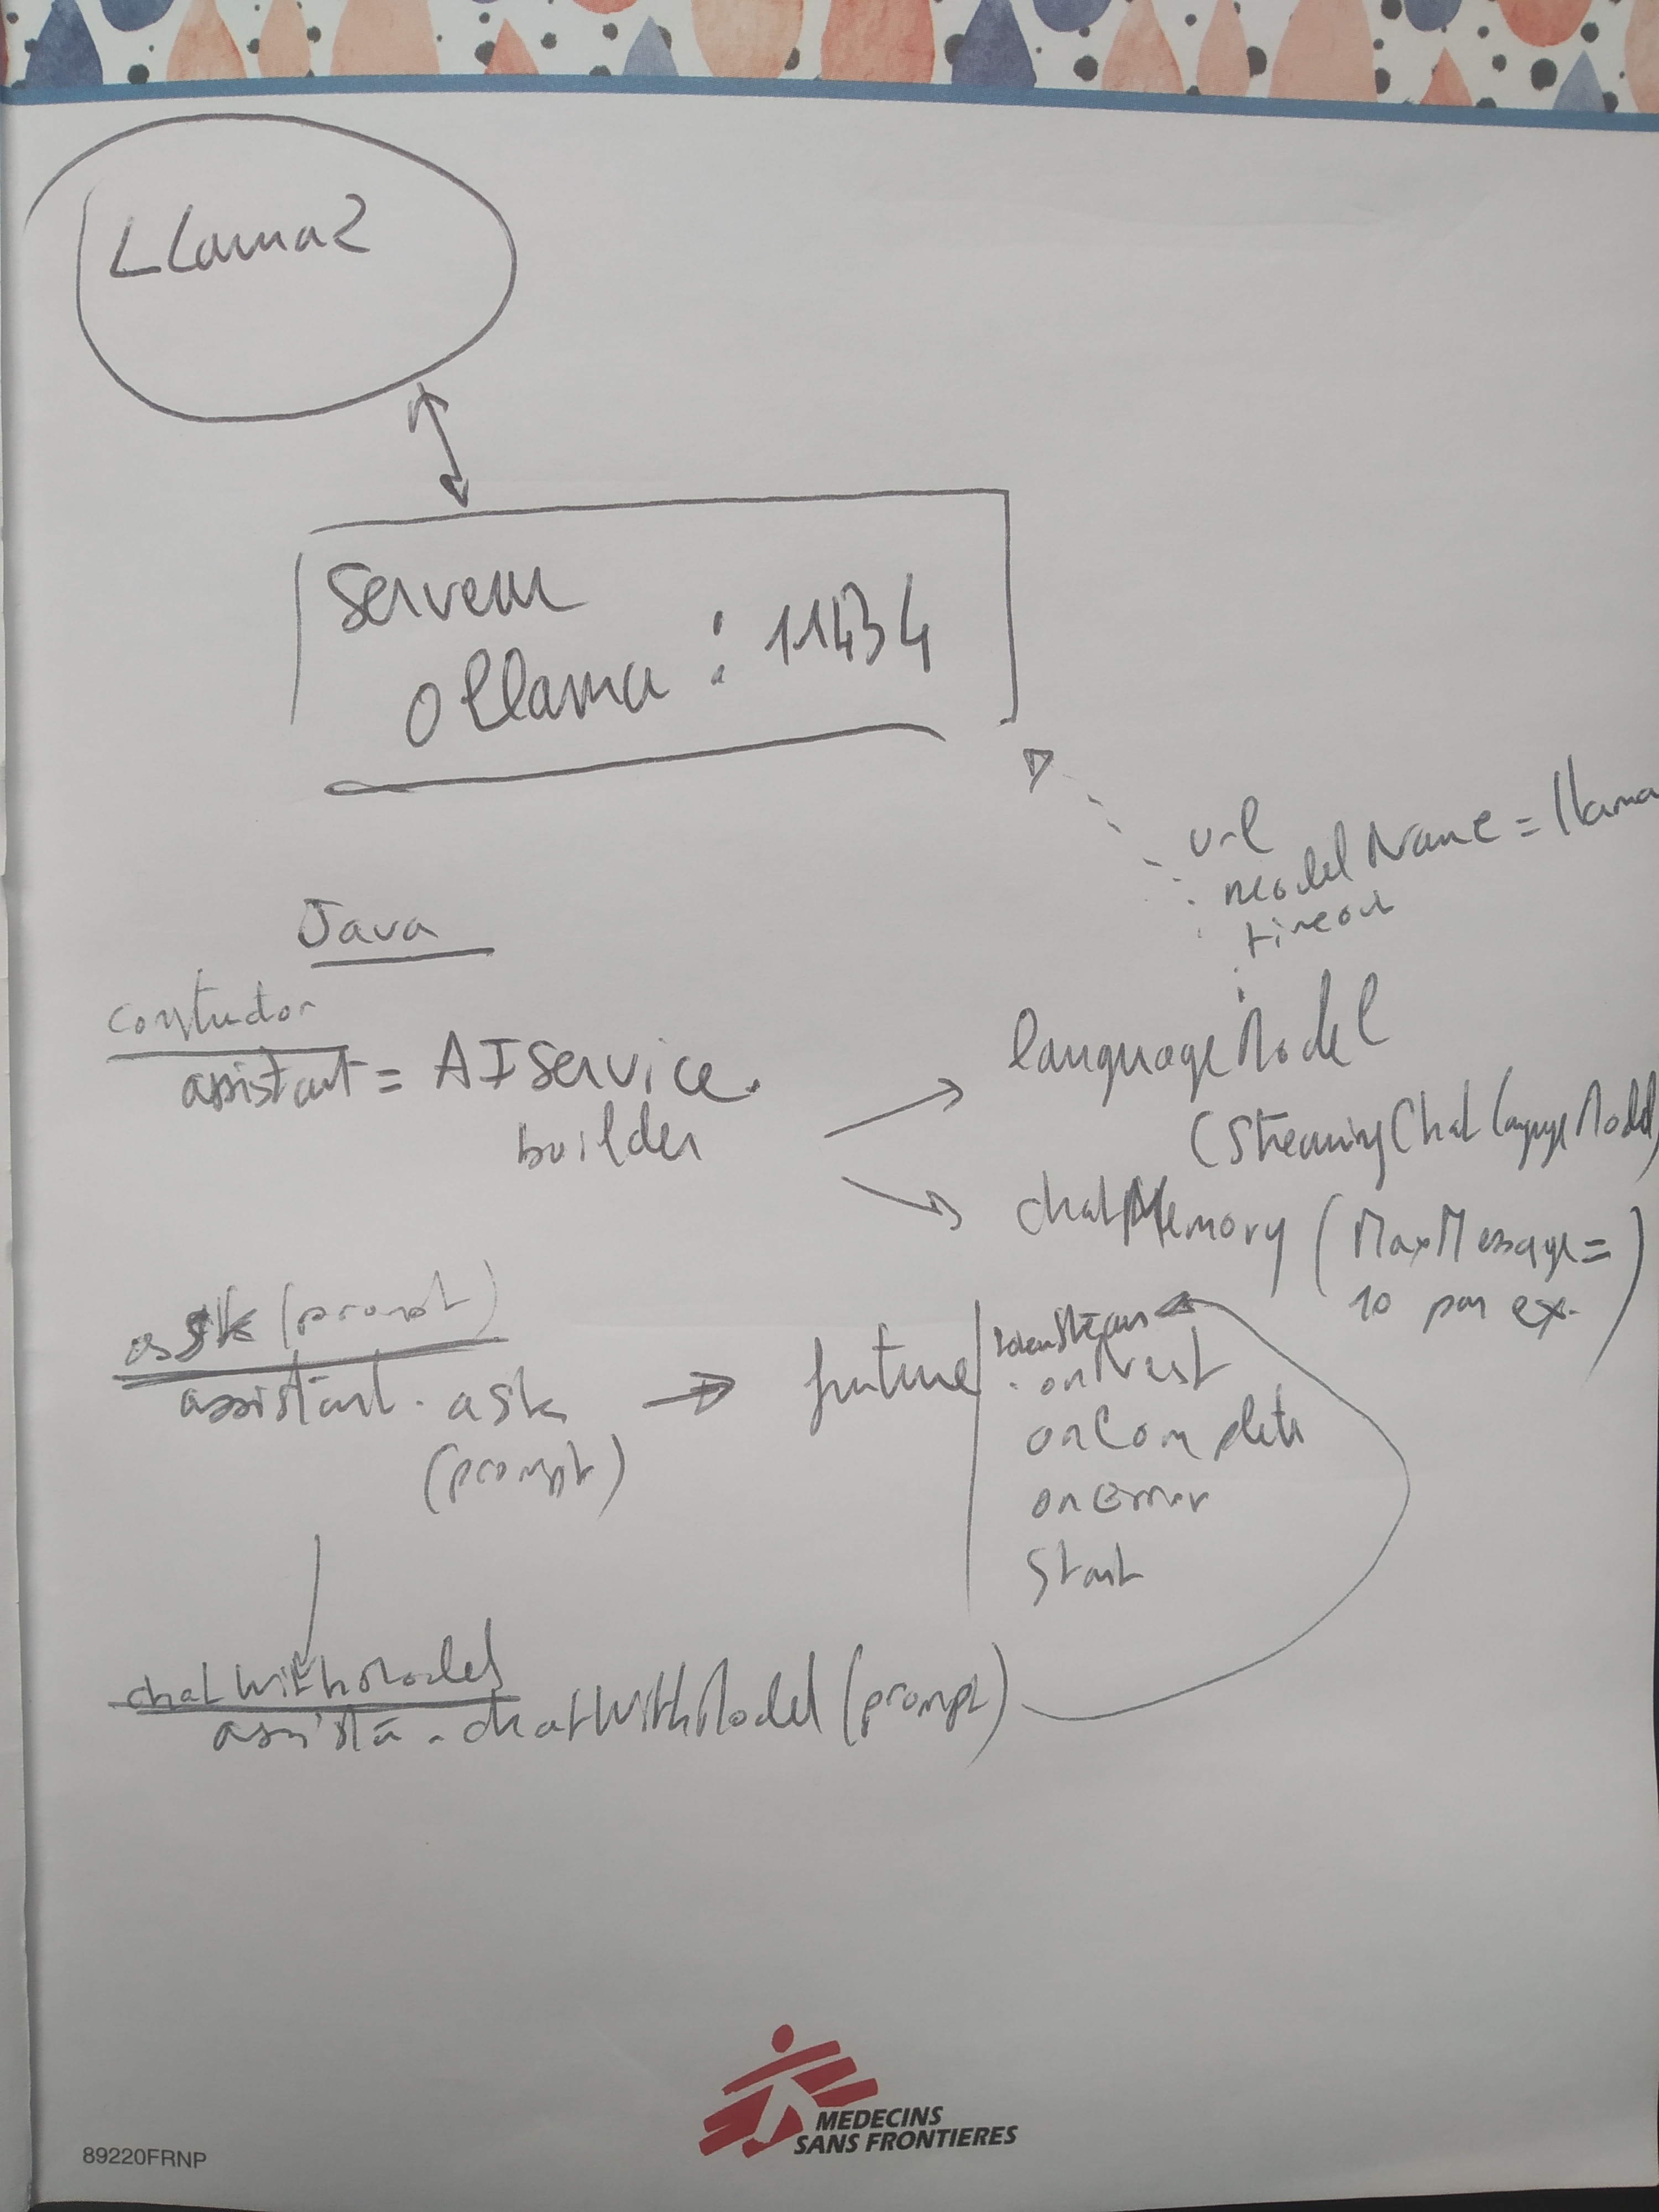 Llama2
Serveur
ollama : 11434
url
modelName = llama
timeout
Java
constructor
assistant = AIService.
builder
languageModel
(StreamingChatLanguageModel)
chatMemory (MaxMessage =
10 par ex.)
ask (prompt)
assistant. ask
(prompt)
future
tokenStream
. onNext
onComplete
onError
start
chatWithModel
assista. chatWithModel (prompt)
MEDECINS
SANS FRONTIERES
89220FRNP